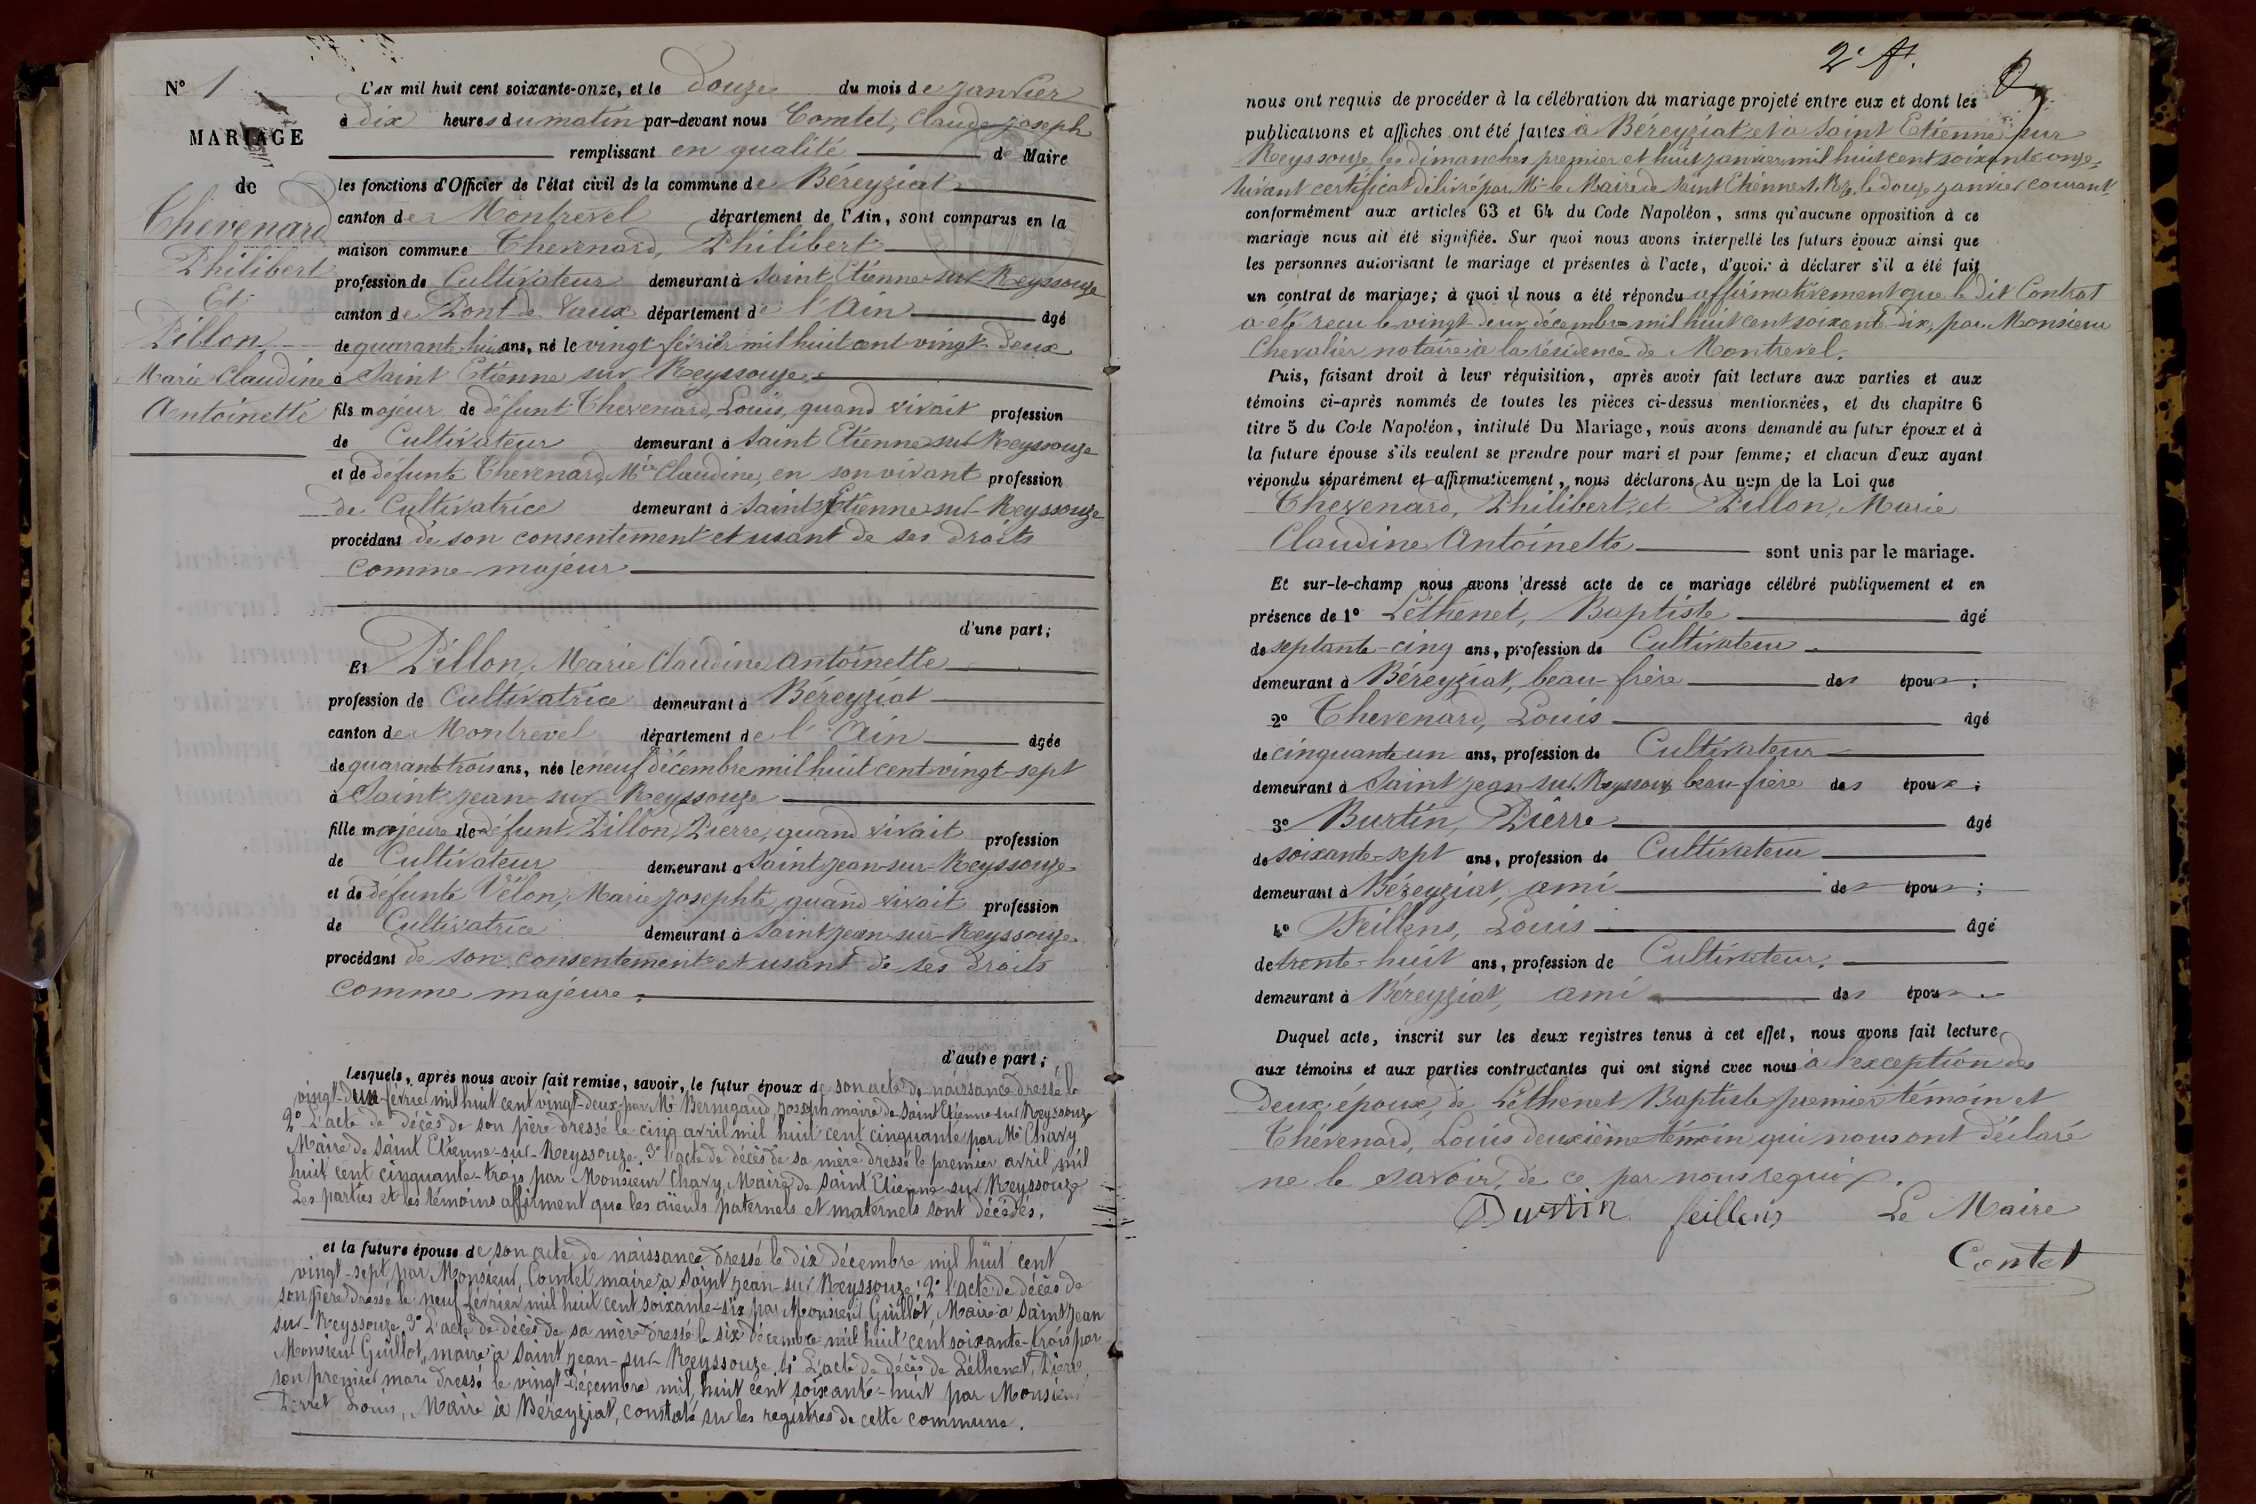 N° 1
MARIAGE
de
Thevenard
Philibert
Et
Pillon
Marie Claudine
Antoinette
L'AN mil huit cent soixante-onze, et le douze du mois de janvier
à dix heures du matin par-devant nous Comtet, Claude Joseph
remplissant en qualité de Maire
les fonctions d'Officier de l'état civil de la commune de Béreyziat
canton de Montrevel département de l'Ain, sont comparus en la
maison commune Thevenard, Philibert
profession de Cultivateur demeurant à Saint Etienne-sur-Reyssouze
canton de Pont de Vaux département de l'Ain âgé
de quarante-huit ans, né le vingt février mil huit cent vingt-deux
à Saint Etienne sur Reyssouze
fils majeur de défunt Thevenard, Louis, quand vivait profession
de Cultivateur demeurant à Saint Etienne sur Reyssouze
et de défunte Thevenard, Mie Claudine, en son vivant profession
de Cultivatrice demeurant à Saint Etienne sur Reyssouze
procédant de son consentement et usant de ses droits
comme majeur
d'une part;
Et Pillon, Marie Claudine Antoinette
profession de Cultivatrice demeurant à Béreyziat
canton de Montrevel département de l'Ain âgée
de quarante trois ans, née le neuf décembre mil huit cent vingt-sept
à Saint Jean-sur-Reyssouze
fille majeure de défunt Pillon, Pierre, quand vivait profession
de Cultivateur demeurant à Saint Jean-sur-Reyssouze
et de défunte Vélon, Marie Josephte, quand vivait profession
de Cultivatrice demeurant à Saint Jean-sur-Reyssouze
procédant de son consentement et usant de ses droits
comme majeure.
d'autre part;
Lesquels, après nous avoir fait remise, savoir, le futur époux de son acte de naissance dressé le
vingt-deux février mil huit cent vingt-deux par Mr Bernigaud, Joseph maire de Saint Etienne sur Reyssouze
2° L'acte de décès de son père dressé le cinq avril mil huit cent cinquante par Mr Chavy
Maire de Saint Etienne-sur-Reyssouze. 3° l'acte de décès de sa mère dressé le premier avril mil
huit cent cinquante-trois par Monsieur Chavy, Maire de Saint Etienne sur Reyssouze
Les parties et les témoins affirment que les aïeuls paternels et maternels sont décédés.
et la future épouse de son acte de naissance dressé le dix décembre mil huit cent
vingt-sept par Monsieur, Comtet maire à Saint Jean-sur Reyssouze; 2° l'acte de décès de
son père dressé le neuf février mil huit cent soixante-six par Monsieur Guillot, Maire à Saint Jean
sur-Reyssouze. 3° L'acte de décès de sa mère dressé le six décembre mil huit cent soixante-trois par
Monsieur Guillot, maire à Saint Jean-sur-Reyssouze. 4° L'acte de décès de Léthenet, Pierre
son premier mari dressé le vingt-décembre mil huit cent soixante-huit par Monsieur
Perret Louis, Maire à Béreyziat, constaté sur les registres de cette commune.
2e f.
nous ont requis de procéder à la célébration du mariage projeté entre eux et dont les
publications et affiches ont été faites à Béreyziat et à Saint Etienne sur
Reyssouze, les dimanches premier et huit janvier mil huit cent soixante onze,
suivant certificat délivré par Mr le Maire de Saint Etienne s. Rze, le douze janvier courant
conformément aux articles 63 et 64 du Code Napoléon, sans qu'aucune opposition à ce
mariage nous ait été signifiée. Sur quoi nous avons interpellé les futurs époux ainsi que
les personnes autorisant le mariage et présentes à l'acte, d'avoir à déclarer s'il a été fait
un contrat de mariage; à quoi il nous a été répondu affirmativement que le dit Contrat
a été reçu le vingt-deux décembre mil huit cent soixante-dix, par Monsieur
Chevalier notaire à la résidence de Montrevel.
Puis, faisant droit à leur réquisition, après avoir fait lecture aux parties et aux
témoins ci-après nommés de toutes les pièces ci-dessus mentionnées, et du chapitre 6
titre 5 du Code Napoléon, intitulé Du Mariage, nous avons demandé au futur époux et à
la future épouse s'ils veulent se prendre pour mari et pour femme; et chacun d'eux ayant
répondu séparément et affirmativement, nous déclarons Au nom de la Loi que
Thevenard, Philibert, et Pillon, Marie
Claudine Antoinette sont unis par le mariage.
Et sur-le-champ nous avons dressé acte de ce mariage célébré publiquement et en
présence de 1° Léthenet, Baptiste âgé
de septante-cinq ans, profession de Cultivateur
demeurant à Béreyziat, beau-frère des époux;
2° Thevenard, Louis âgé
de cinquante un ans, profession de Cultivateur
demeurant à Saint Jean sur Reyssouze beau-frère des époux;
3° Burtin, Pierre âgé
de soixante-sept ans, profession de Cultivateur
demeurant à Béreyziat, ami des époux;
4° Feillens, Louis âgé
de trente-huit ans, profession de Cultivateur.
demeurant à Béreyziat, ami des époux
Duquel acte, inscrit sur les deux registres tenus à cet effet, nous avons fait lecture
aux témoins et aux parties contractantes qui ont signé avec nous à l'exception des
deux époux, de Léthenet Baptiste premier témoin et
Thévenard, Louis deuxième témoin qui nous ont déclaré
ne le savoir, de ce par nous requis.
Burtin feillens Le Maire
Comtet